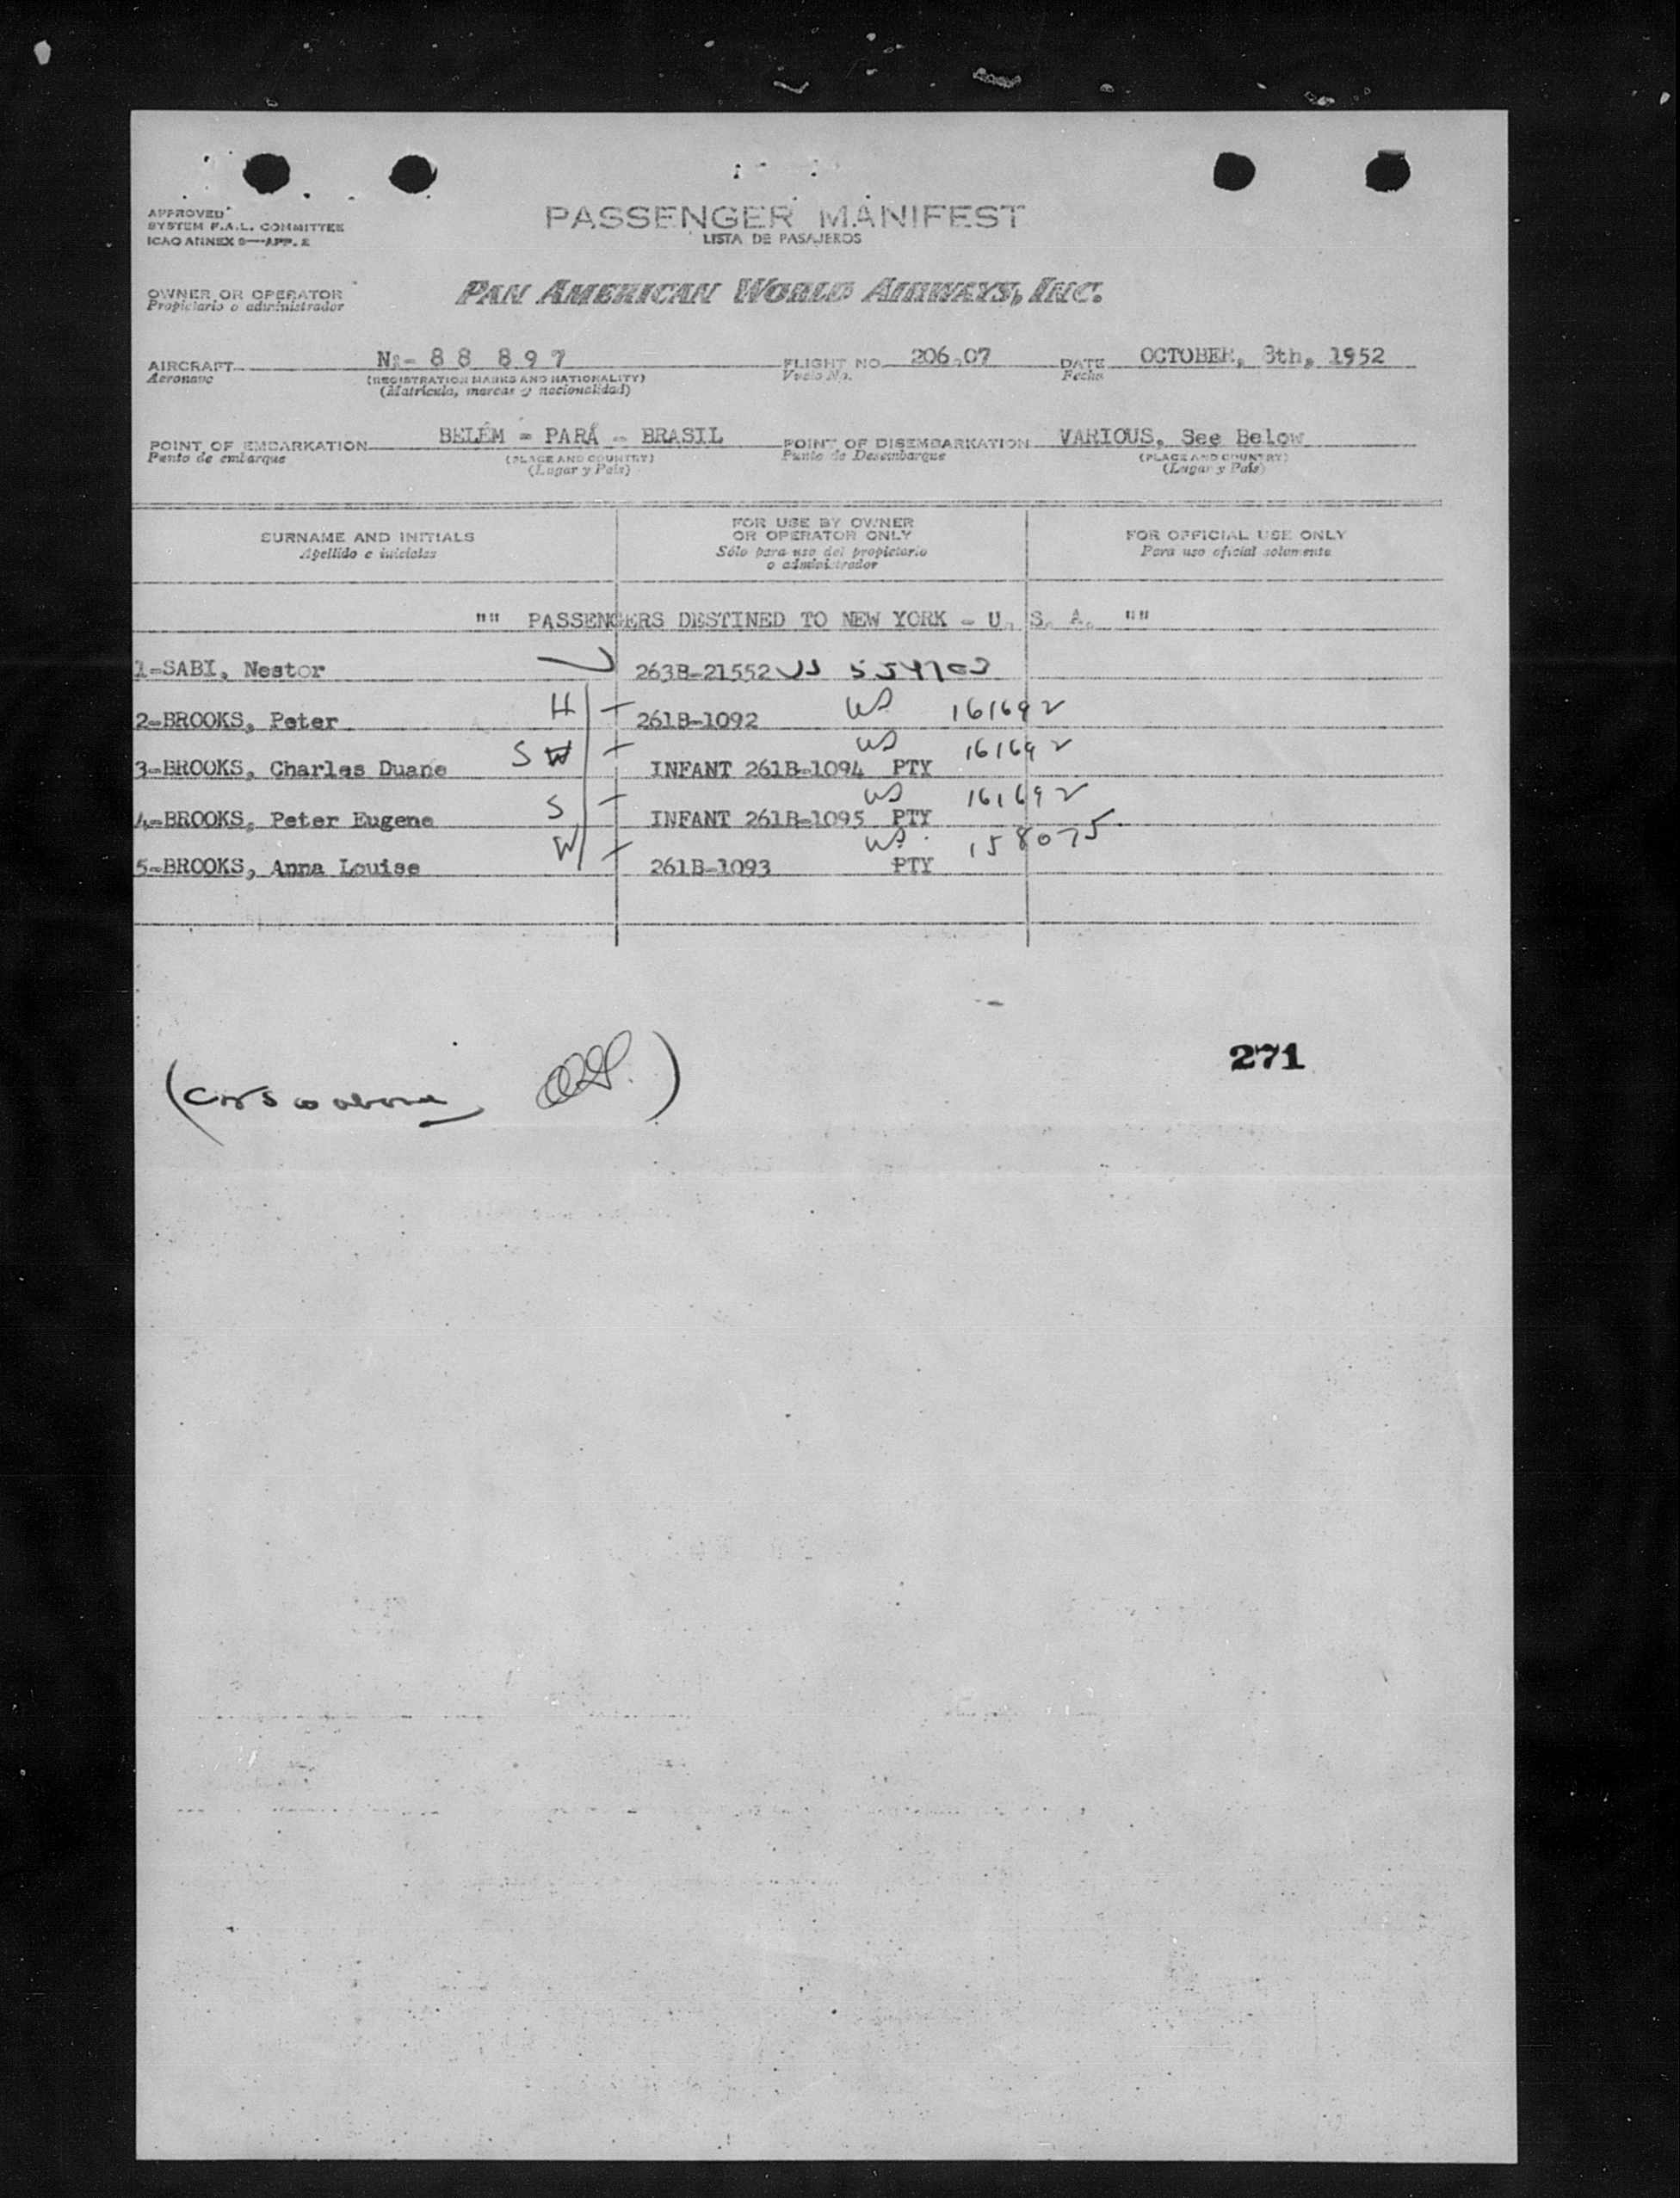 APPROVED
SYSTEM F.A.L. COMMITTEE
ICAO ANNEX 9—APP. E
PASSENGER MANIFEST
LISTA DE PASAJEROS
OWNER OR OPERATOR
Propietario o administrador
PAN AMERICAN WORLD AIRWAYS, INC.
AIRCRAFT N:- 88 897 FLIGHT NO. 206.07 DATE OCTOBER, 8th, 1952
Aeronave (REGISTRATION MARKS AND NATIONALITY) Vuelo No. Fecha
(Matrícula, marcas y nacionalidad)
POINT OF EMBARKATION BELÉM - PARÁ - BRASIL POINT OF DISEMBARKATION VARIOUS, See Below
Punto de embarque (PLACE AND COUNTRY) Punto de Desembarque (PLACE AND COUNTRY)
(Lugar y País) (Lugar y País)
SURNAME AND INITIALS
Apellido e iniciales
FOR USE BY OWNER
OR OPERATOR ONLY
Sólo para uso del propietario
o administrador
FOR OFFICIAL USE ONLY
Para uso oficial solamente
"" PASSENGERS DESTINED TO NEW YORK - U. S. A. ""
1-SABI, Nestor 263B-21552 US
2-BROOKS, Peter H 261B-1092 US 161692
3-BROOKS, Charles Duane S W INFANT 261B-1094 PTY US 161692
4-BROOKS, Peter Eugene S INFANT 261B-1095 PTY US 161692
5-BROOKS, Anna Louise W 261B-1093 PTY US. 158075
271
above